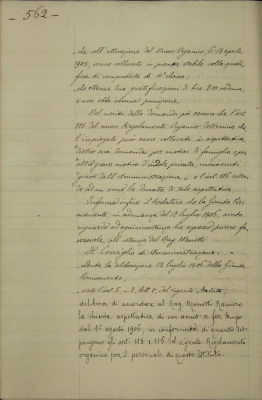 - 562 -
che coll'attuazione del Nuovo Organico, il 1° aprile
1905, venne collocato in pianta stabile colla quali-
fica di computista di 4ª classe;
che ottenne due gratificazioni di lire 200 caduna
e non ebbe alcuna punizione.
Nel merito della domanda poi osserva che l'art.
115 del nuovo Regolamento Organico determina che
l'impiegato può essere collocato in aspettativa
dietro sua domanda per motivi di famiglia o per
altri gravi motivi d'indole privata, riconosciuti
giusti dall'Amministrazione, e l'art. 116
ad un anno la durata di tale aspettativa.
Informa infine il Relatore che la Giunta Per-
manente, in adunanza del 12 luglio 1906, avuto
riguardo ad ogni circostanza ha espresso parere fa-
vorevole all'istanza del Rag. Menotti.
Il Consiglio di Amministrazione:
veduta la deliberazione 12 luglio 1906 della Giunta
Permanente;
visto l'art. 5, n. 2, lett. c, del vigente Statuto;
delibera di accordare al Rag. Menotti Ramiro
la chiesta aspettativa di un anno a far tempo
dal 1° agosto 1906, in conformità di quanto dis-
pongono gli art. 115 e 116 del vigente Regolamento
organico per il personale di questo Istituto.